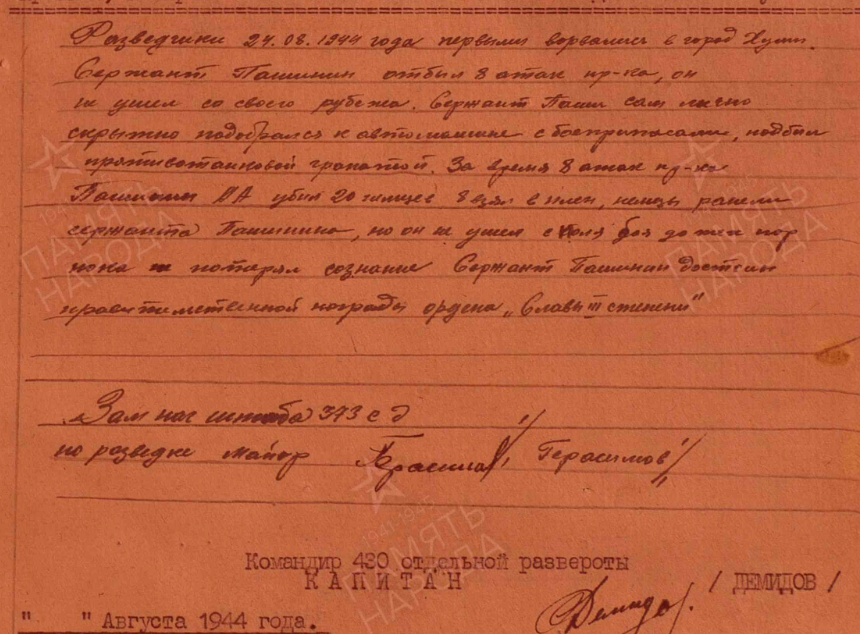 Разведчики 24.08.1944 года первыми ворвались в город Хуши.
Сержант Пашинин отбил 8 атак пр-ка, он
не ушел со своего рубежа. Сержант Пашин сам лично
скрытно подобрался к автомашине с боеприпасами, подбил
противотанковой гранатой. За время 8 атак пр-ка
Пашинин убил 20 гитлецев 8 взял в плен, немцы ранели
сержанта Пашинина, но он не ушел с поля боя до тех пор
пока не потерял сознание Сержант Пашинин достоин
правительственной награды ордена „Славы III степени"
Зам нач штаба 373 с д
по разведке майор Герасимов / Герасимов /
Командир 430 отдельной развероты
КАПИТАН
Демидов / ДЕМИДОВ /
" " Августа 1944 года.
1941-1945
ПАМЯТЬ
НАРОДА
ПАМЯТЬ
НАРОДА
1941-1945
ПАМЯТЬ
НАРОДА